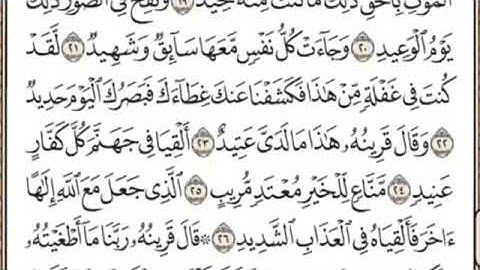 ٱلْمَوْتِ بِٱلْحَقِّ ذَٰلِكَ مَا كُنتَ مِنْهُ تَحِيدُ ١٩ وَنُفِخَ فِى ٱلصُّورِ ذَٰلِكَ
يَوْمُ ٱلْوَعِيدِ ٢٠ وَجَآءَتْ كُلُّ نَفْسٍ مَّعَهَا سَآئِقٌ وَشَهِيدٌ ٢١ لَّقَدْ
كُنتَ فِى غَفْلَةٍ مِّنْ هَٰذَا فَكَشَفْنَا عَنكَ غِطَآءَكَ فَبَصَرُكَ ٱلْيَوْمَ حَدِيدٌ
٢٢ وَقَالَ قَرِينُهُۥ هَٰذَا مَا لَدَىَّ عَتِيدٌ ٢٣ أَلْقِيَا فِى جَهَنَّمَ كُلَّ كَفَّارٍ
عَنِيدٍ ٢٤ مَّنَّاعٍ لِّلْخَيْرِ مُعْتَدٍ مُّرِيبٍ ٢٥ ٱلَّذِى جَعَلَ مَعَ ٱللَّهِ إِلَٰهًا
ءَاخَرَ فَأَلْقِيَاهُ فِى ٱلْعَذَابِ ٱلشَّدِيدِ ٢٦ ۞ قَالَ قَرِينُهُۥ رَبَّنَا مَآ أَطْغَيْتُهُۥ